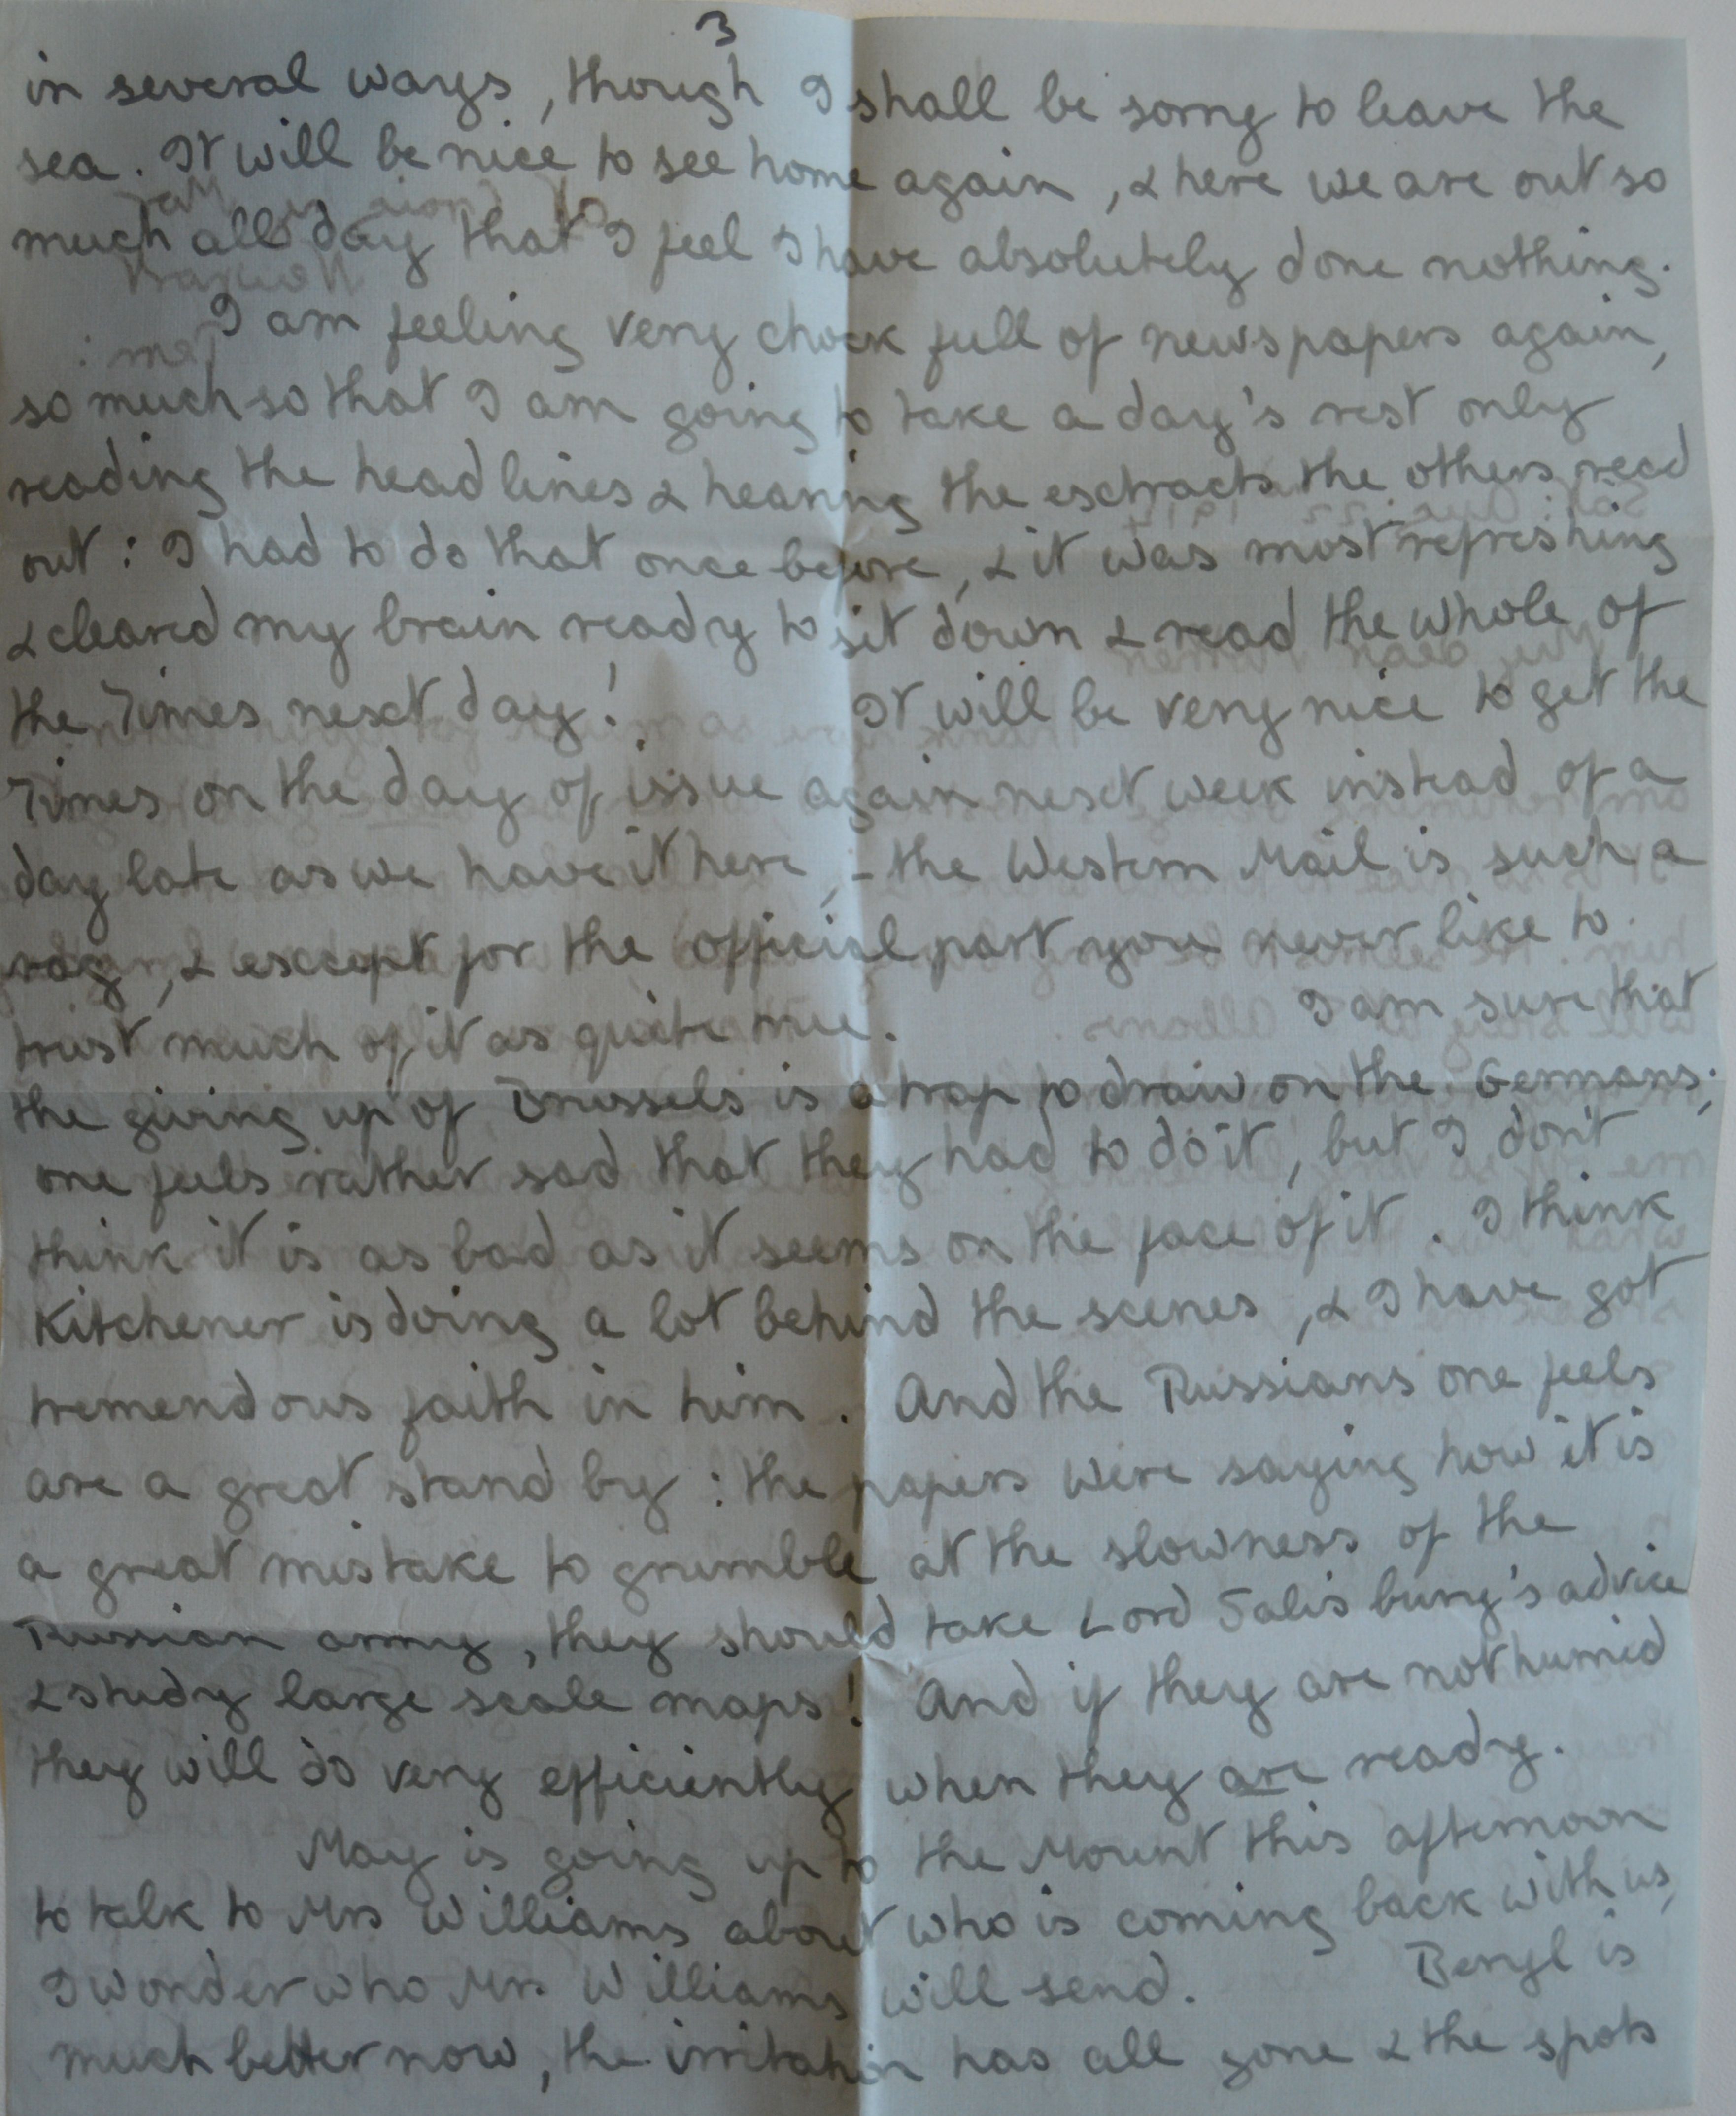 3
in several ways, though I shall be sorry to leave the
sea. It will be nice to see home again, & here we are out so
much all day that I feel I have absolutely done nothing.
I am feeling very chock full of newspapers again,
so much so that I am going to take a day's rest only
reading the head lines & hearing the extracts the others read
out: I had to do that once before, & it was most refreshing
& cleared my brain ready to sit down & read the whole of
the Times next day! It will be very nice to get the
Times on the day of issue again next week instead of a
day late as we have it here, - the Western Mail is such a
rag, & except for the official part you never like to
trust much of it as quite true. I am sure that
the giving up of Brussels is a trap to draw on the Germans;
one feels rather sad that they had to do it, but I don't
think it is as bad as it seems on the face of it. I think
Kitchener is doing a lot behind the scenes, & I have got
tremendous faith in him. And the Russians one feels
are a great stand by: the papers were saying how it is
a great mistake to grumble at the slowness of the
Russian army, they should take Lord Salisbury's advice
& study large scale maps! And if they are not hurried
they will do very efficiently when they are ready.
May is going up to the Mount this afternoon
to talk to Mrs Williams about who is coming back with us,
I wonder who Mrs. Williams will send. Beryl is
much better now, the irritation has all gone & the spots